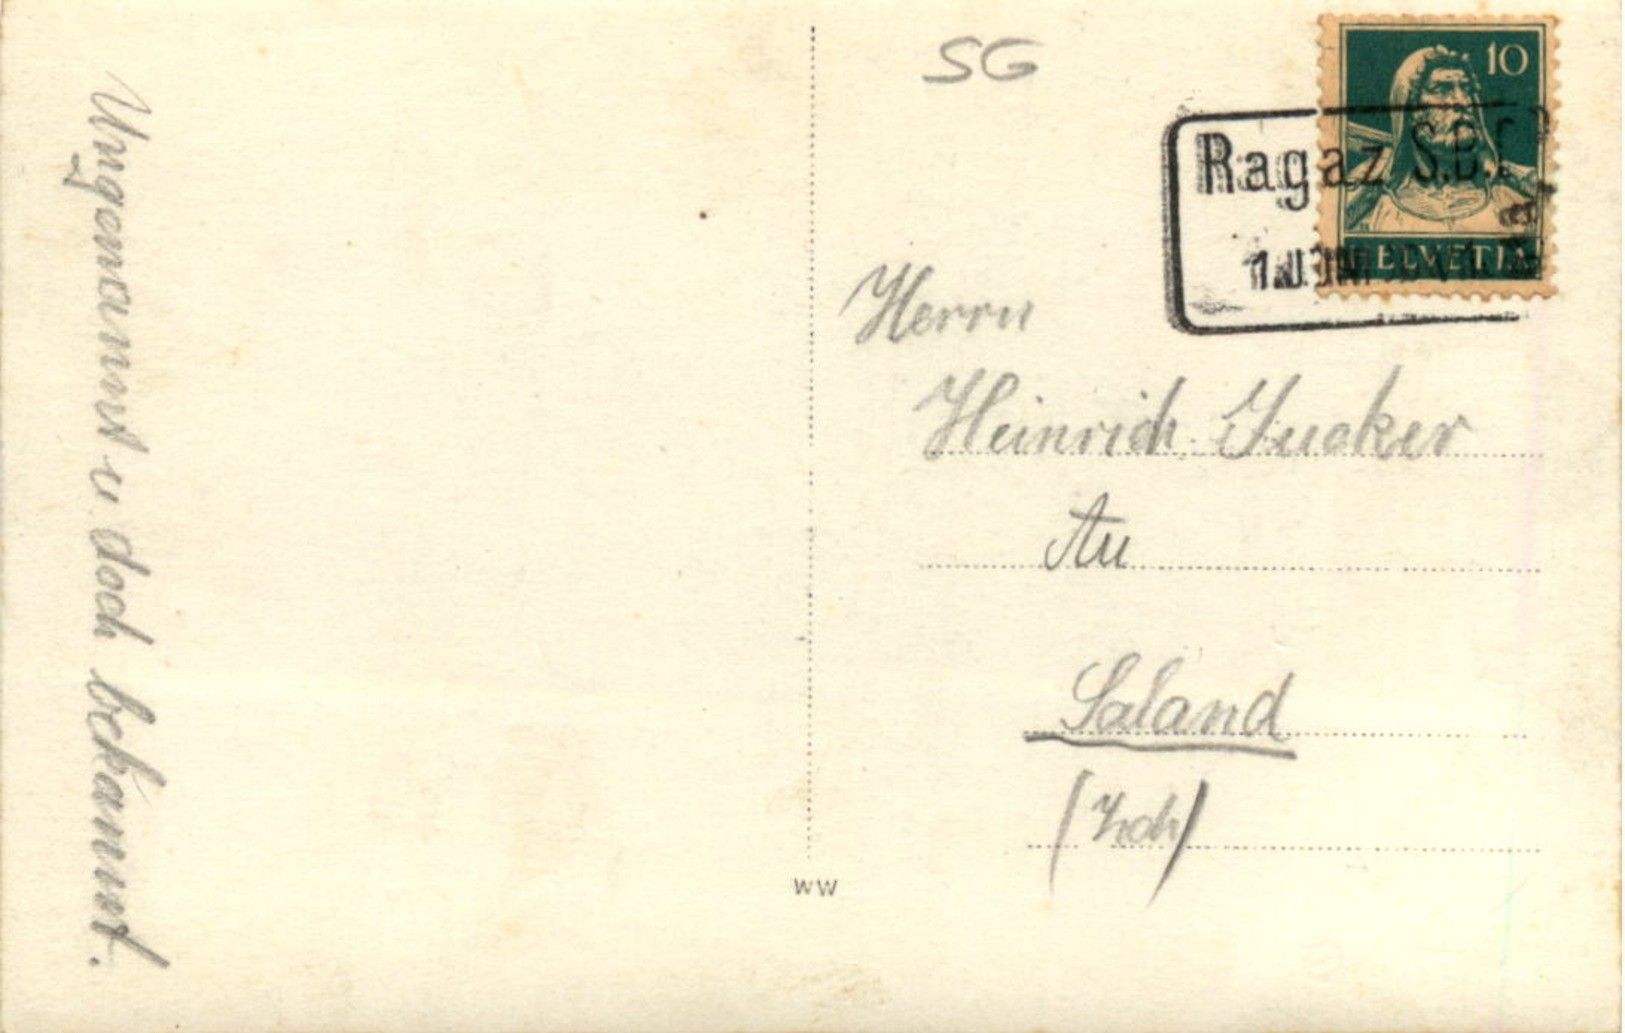 Ungenannt u doch bekannt.
SG
10
HELVETIA
Ragaz S.B.
Herrn
Heinrich Jucker
Au
Saland
(Zch)
WW